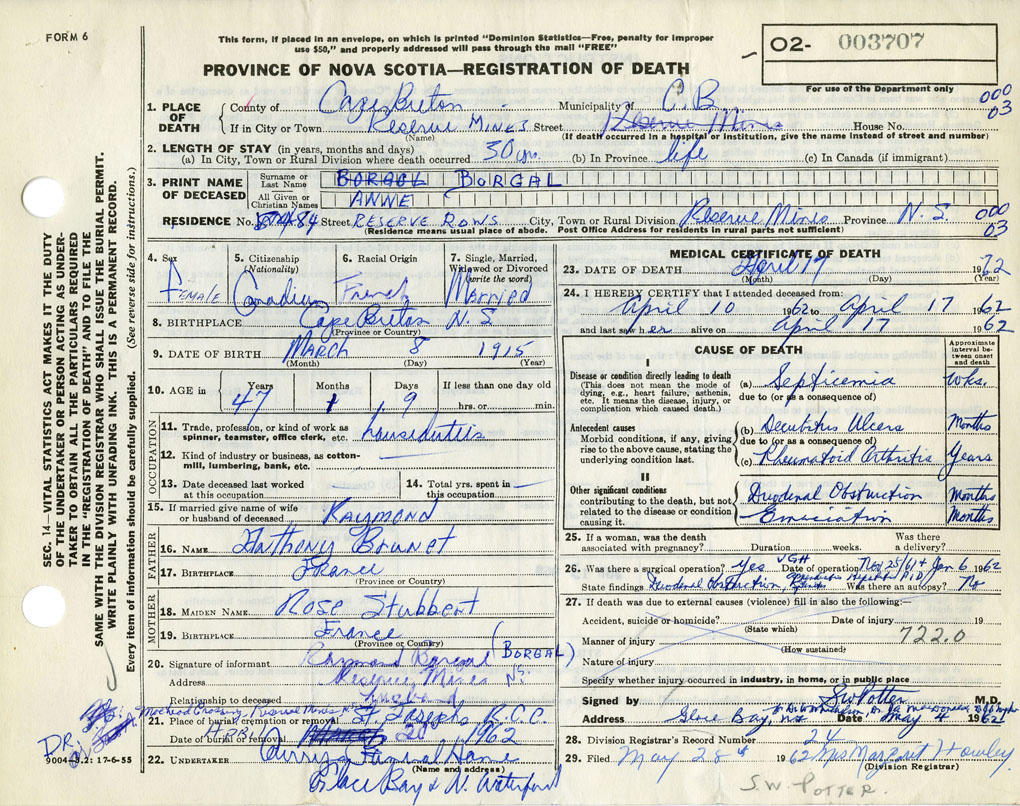 FORM 6
This form, if placed in an envelope, on which is printed "Dominion Statistics—Free, penalty for improper
use $50," and properly addressed will pass through the mail "FREE"
PROVINCE OF NOVA SCOTIA—REGISTRATION OF DEATH
O2- 003707
For use of the Department only
000
03
SEC. 14—VITAL STATISTICS ACT MAKES IT THE DUTY
OF THE UNDERTAKER OR PERSON ACTING AS UNDER-
TAKER TO OBTAIN ALL THE PARTICULARS REQUIRED
IN THE "REGISTRATION OF DEATH" AND TO FILE THE
SAME WITH THE DIVISION REGISTRAR WHO SHALL ISSUE THE BURIAL PERMIT.
WRITE PLAINLY WITH UNFADING INK. THIS IS A PERMANENT RECORD.
Every item of information should be carefully supplied. (See reverse side for instructions.)
1. PLACE OF DEATH County of Cape Breton Municipality of C.B.
If in City or Town Reserve Mines Street Reserve Mines House No.
(Name) (If death occurred in a hospital or institution, give the name instead of street and number)
2. LENGTH OF STAY (in years, months and days)
(a) In City, Town or Rural Division where death occurred 30 yrs. (b) In Province life (c) In Canada (if immigrant)
3. PRINT NAME OF DECEASED Surname or Last Name BORGAL
All Given or Christian Names ANNE
RESIDENCE No. 84 Street RESERVE ROWS City, Town or Rural Division Reserve Mines Province N.S. 000
03
(Residence means usual place of abode. Post Office Address for residents in rural parts not sufficient)
4. Sex Female
5. Citizenship (Nationality) Canadian
6. Racial Origin French
7. Single, Married, Widowed or Divorced (write the word) Married
8. BIRTHPLACE Cape Breton N.S.
(Province or Country)
9. DATE OF BIRTH March 8 1915
(Month) (Day) (Year)
10. AGE in Years 47 Months 1 Days 9 If less than one day old hrs. or min.
OCCUPATION
11. Trade, profession, or kind of work as spinner, teamster, office clerk, etc. houseduties
12. Kind of industry or business, as cotton-mill, lumbering, bank, etc.
13. Date deceased last worked at this occupation
14. Total yrs. spent in this occupation
15. If married give name of wife or husband of deceased RAYMOND
FATHER
16. NAME Anthony Brunet
17. BIRTHPLACE France
(Province or Country)
MOTHER
18. MAIDEN NAME Rose Stubbert
19. BIRTHPLACE France
(Province or Country)
20. Signature of informant Raymond Borgal (BORGAL)
Address Reserve Mines N.S.
Relationship to deceased husband
21. Place of burial, cremation or removal St. Josephs R.C.C.
Date of burial or removal APRIL 20 1962
22. UNDERTAKER Curry's Funeral Home
(Name and address)
Glace Bay & N. Waterford
DR.
9004-8.2: 17-6-55
MEDICAL CERTIFICATE OF DEATH
23. DATE OF DEATH April 17 1962
(Month) (Day) (Year)
24. I HEREBY CERTIFY that I attended deceased from:
April 10 1962 to April 17 1962
and last saw her alive on April 17 1962
CAUSE OF DEATH
Approximate interval between onset and death
I
Disease or condition directly leading to death
(This does not mean the mode of dying, e.g., heart failure, asthenia, etc. It means the disease, injury, or complication which caused death.)
(a) Septicemia wks.
due to (or as a consequence of)
Antecedent causes
Morbid conditions, if any, giving rise to the above cause, stating the underlying condition last.
(b) Decubitus Ulcers Months
due to (or as a consequence of)
(c) Rheumatoid Arthritis Years
II
Other significant conditions
contributing to the death, but not related to the disease or condition causing it.
Duodenal Obstruction Months
Emaciation Months
25. If a woman, was the death associated with pregnancy? Duration weeks. Was there a delivery?
26. Was there a surgical operation? yes VGH Date of operation Nov 25/61 + Jan 6 1962
State findings Duodenal Obstruction, Was there an autopsy? No
27. If death was due to external causes (violence) fill in also the following:—
Accident, suicide or homicide? Date of injury 19
(State which)
Manner of injury 722.0
(How sustained)
Nature of injury
Specify whether injury occurred in industry, in home, or in public place
Signed by SW Potter M.D.
Address Glace Bay, NS Date May 4 1962
28. Division Registrar's Record Number 24
29. Filed May 28th 1962 Mrs Margaret Howley
(Division Registrar)
S.W. POTTER.